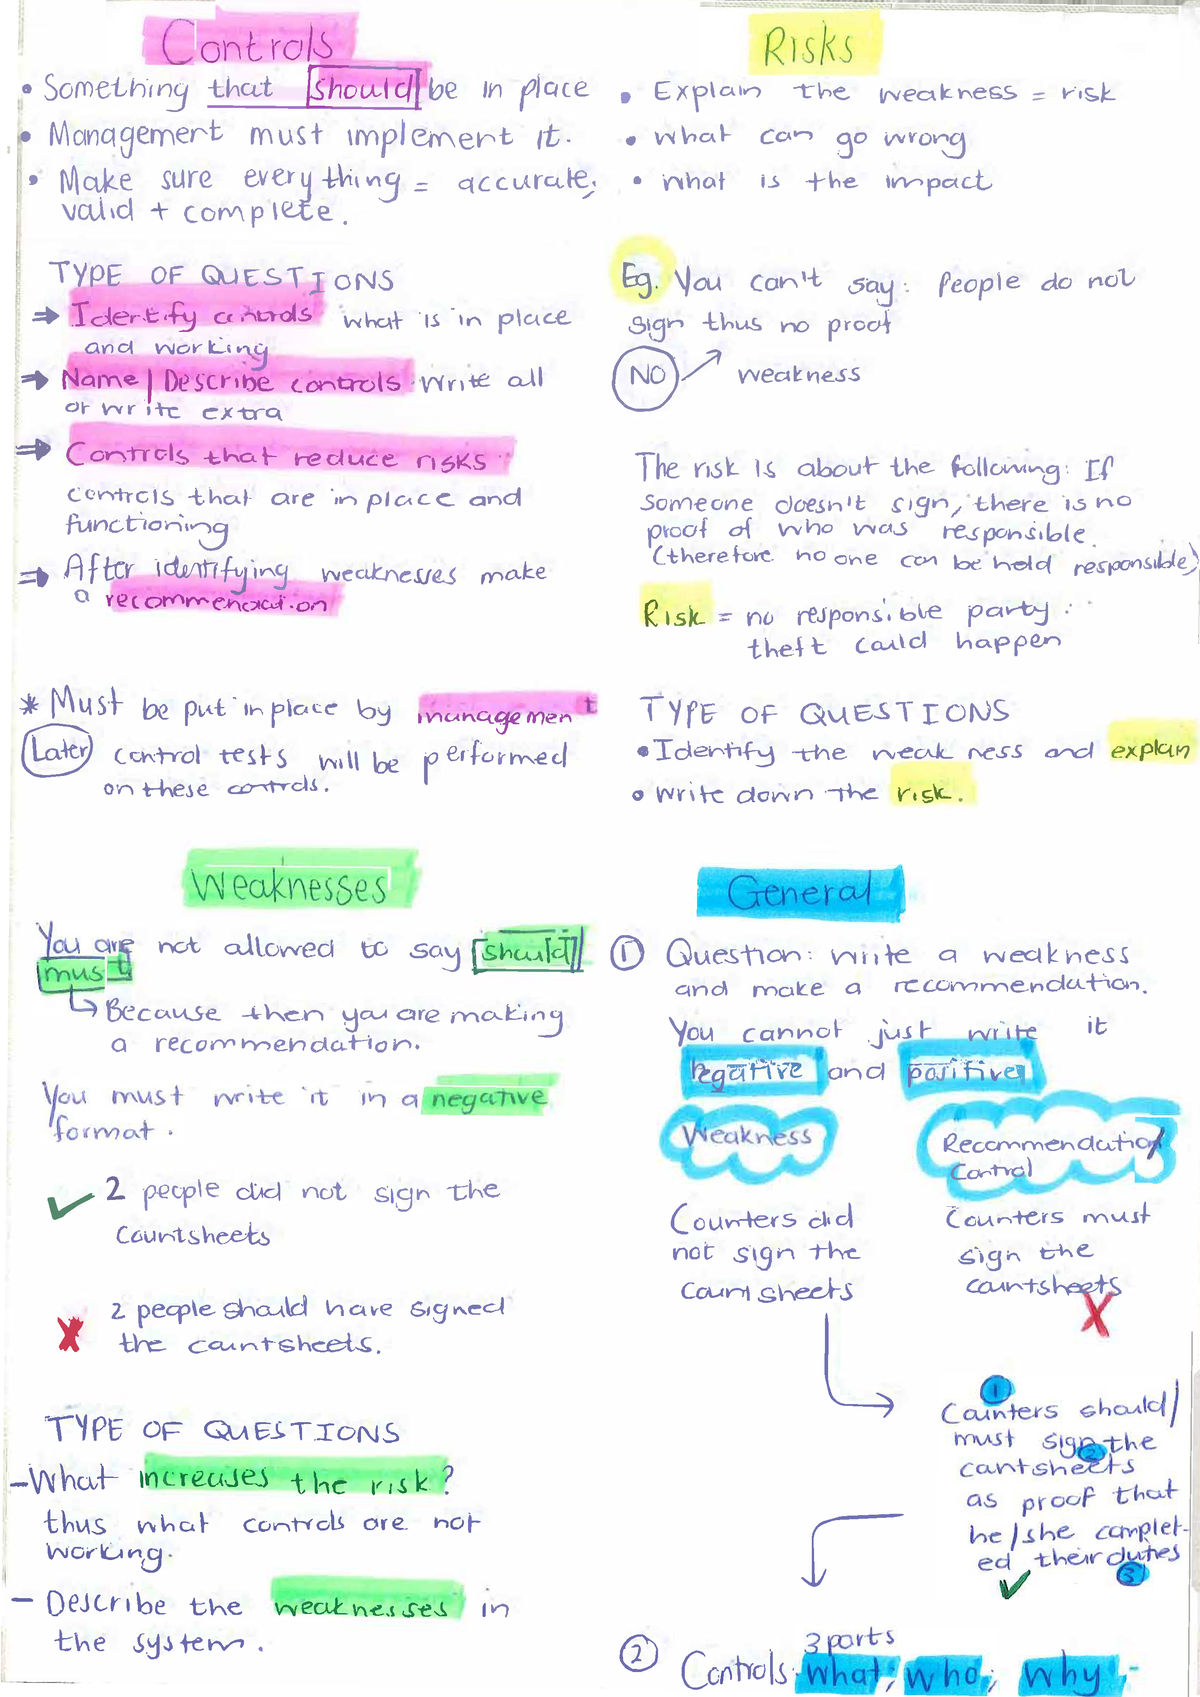 Controls
• Something that should be in place
• Management must implement it.
• Make sure everything = accurate,
valid + complete.
TYPE OF QUESTIONS
⇒ Identify controls what is in place
and working
⇒ Name | Describe controls write all
or write extra
⇒ Controls that reduce risks
controls that are in place and
functioning
⇒ After identifying weaknesses make
a recommendation
* Must be put in place by management
Later control tests will be performed
on these controls.
Risks
• Explain the weakness = risk
• what can go wrong
• what is the impact
Eg. You can't say: People do not
sign thus no proof
NO ↗ weakness
The risk is about the following: If
someone doesn't sign, there is no
proof of who was responsible.
(therefore no one can be held responsible)
Risk = no responsible party ∴
theft could happen
TYPE OF QUESTIONS
• Identify the weakness and explain
• write down the risk.
Weaknesses
You are not allowed to say should
must
↳ Because then you are making
a recommendation.
You must write it in a negative
format.
✓ 2 people did not sign the
countsheets
X 2 people should have signed
the countsheets.
TYPE OF QUESTIONS
- What increases the risk?
thus what controls are not
working.
- Describe the weaknesses in
the system.
General
① Question: write a weakness
and make a recommendation.
You cannot just write it
negative and positive
Weakness
Counters did
not sign the
countsheets
Recommendation/
Control
Counters must
sign the
countsheets
X
①
Counters should/
must sign the
②
countsheets
as proof that
he/she complet-
ed their duties
✓ ③
② 3 parts
Controls: what, who, why.